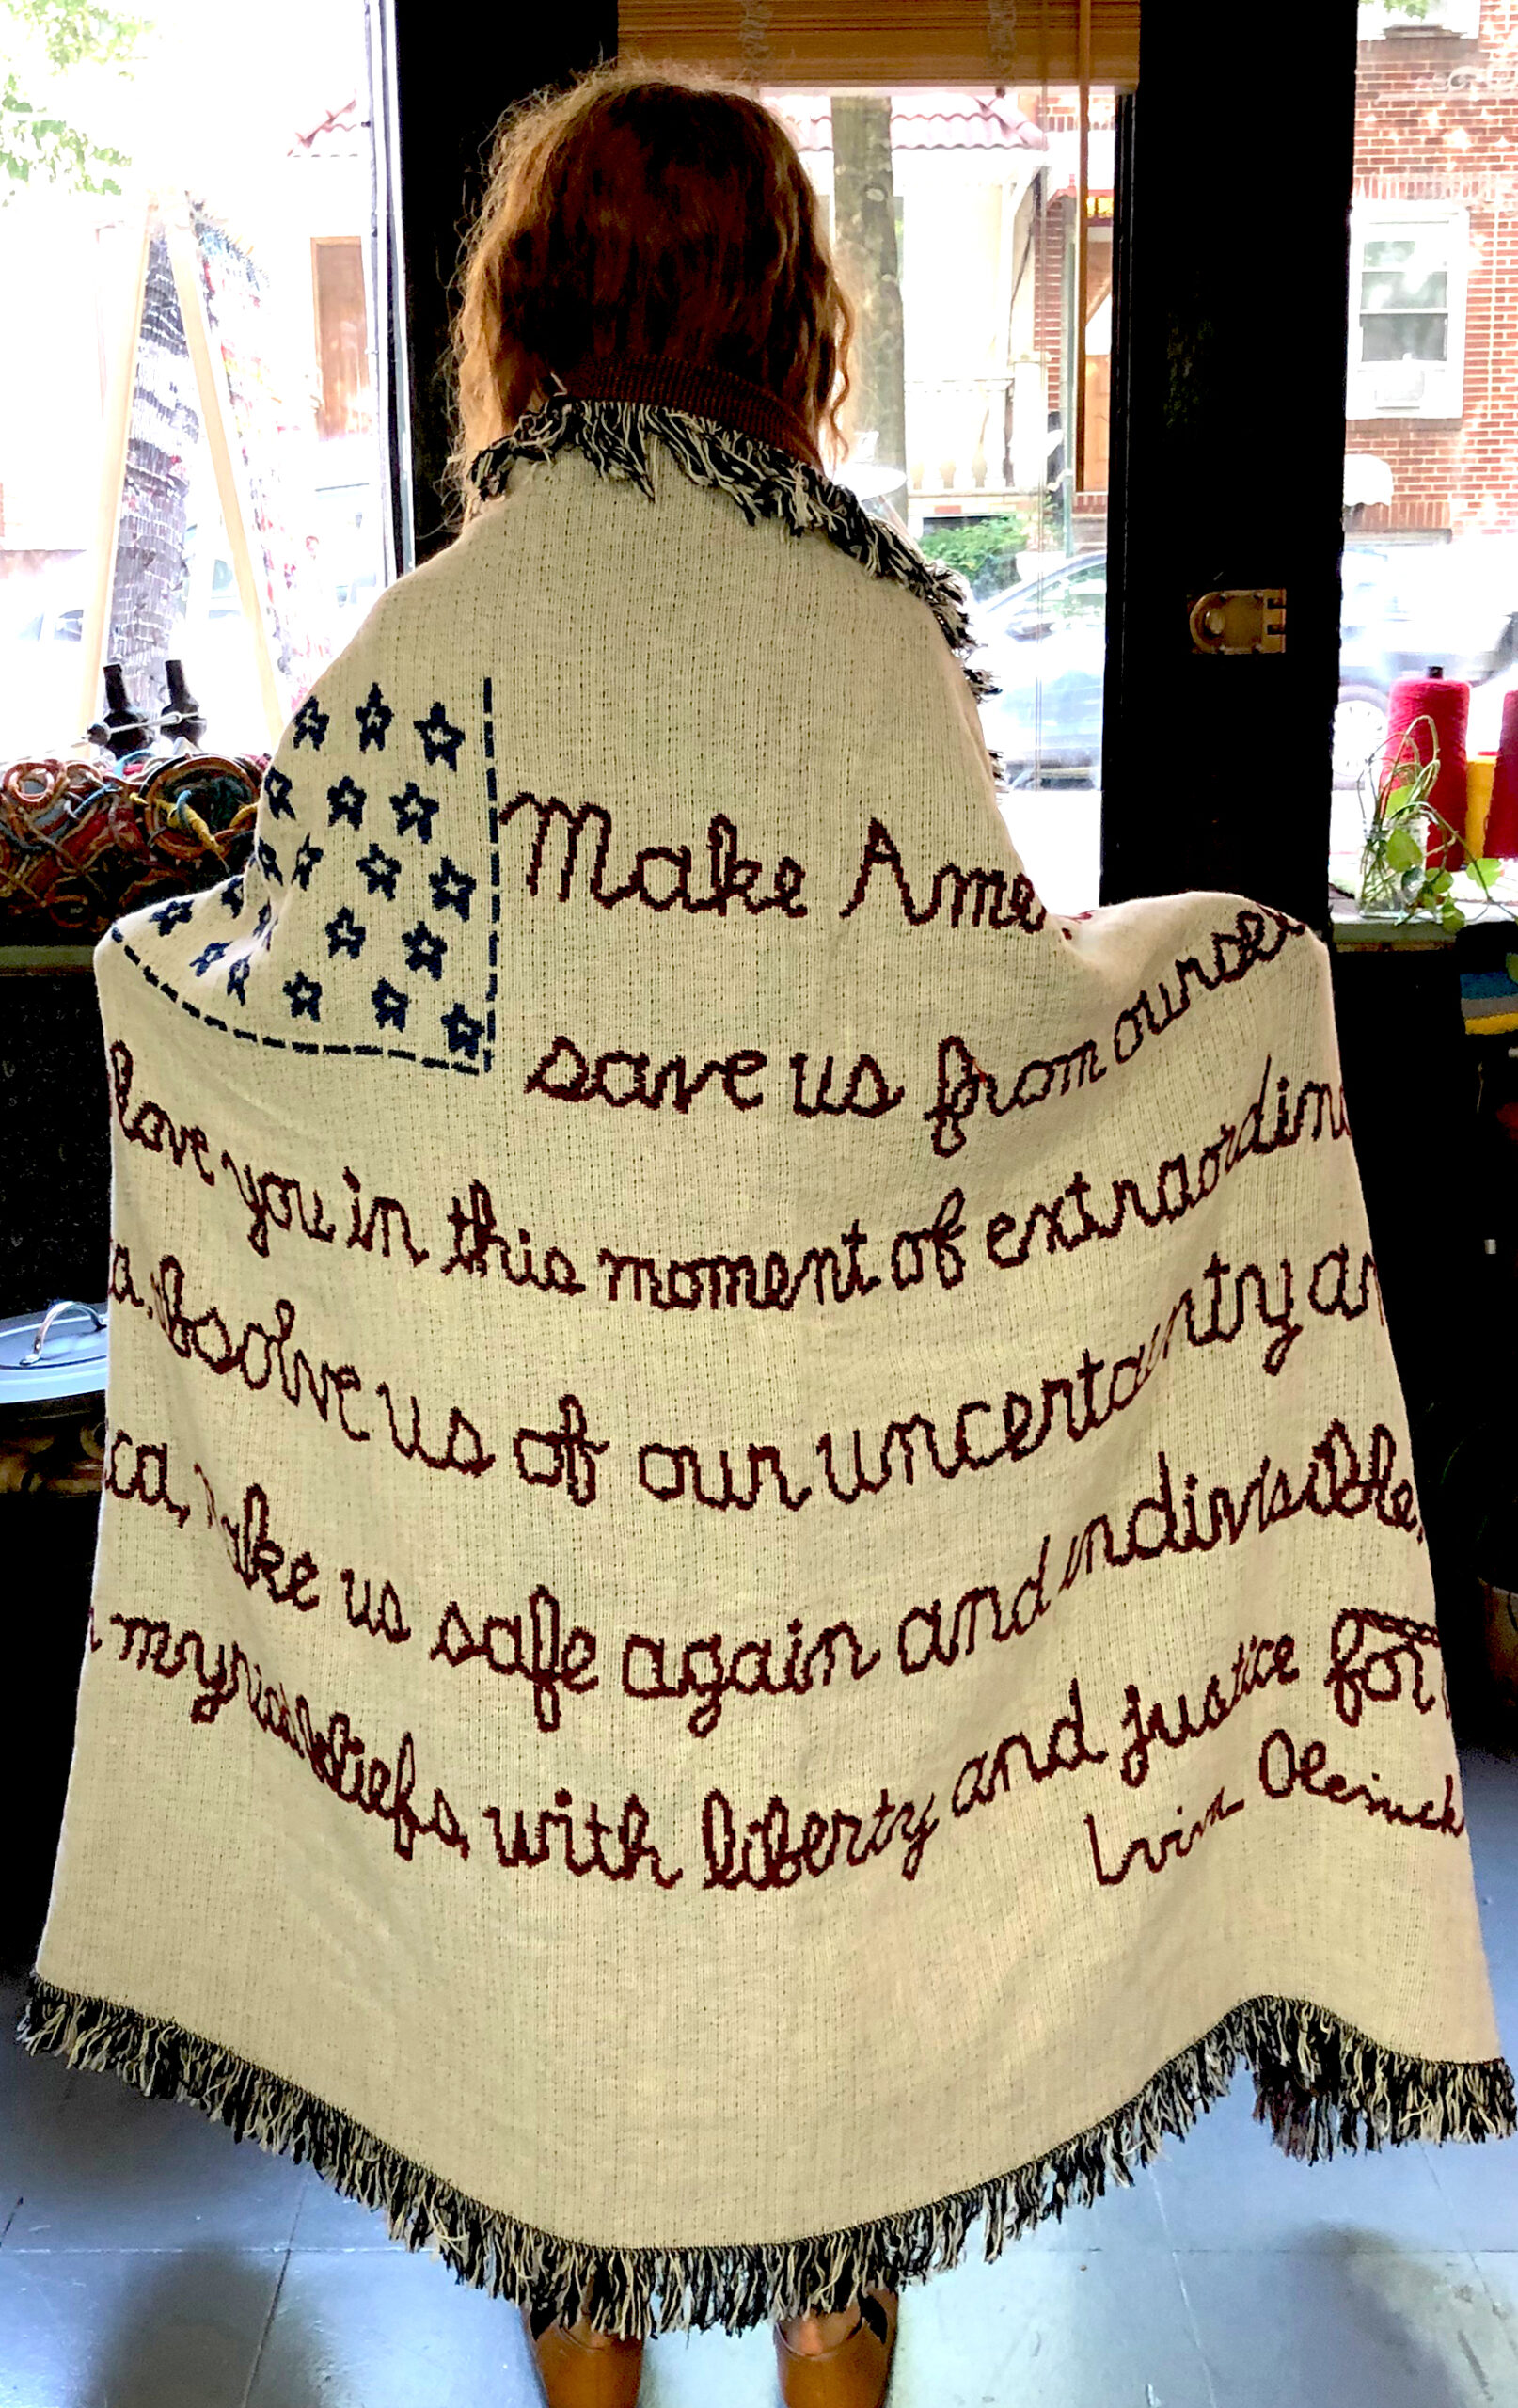 Make Ame
save us from oursel
love you in this moment of extraordina
a, absolve us of our uncertainty an
ca, make us safe again and indivisible,
myriad beliefs, with liberty and justice for
Olesnick